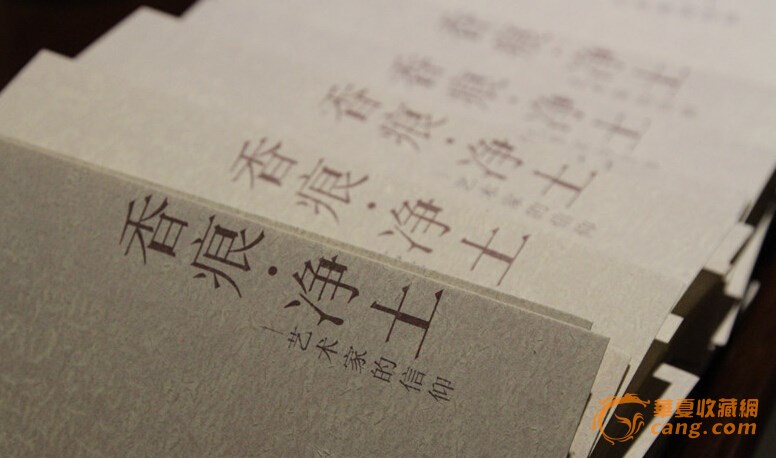 香痕·净土
—艺术家的信仰
香痕·净土
香痕·净土
—艺术家的信仰
香痕·净土
香痕·净土
華夏收藏網
cang.com